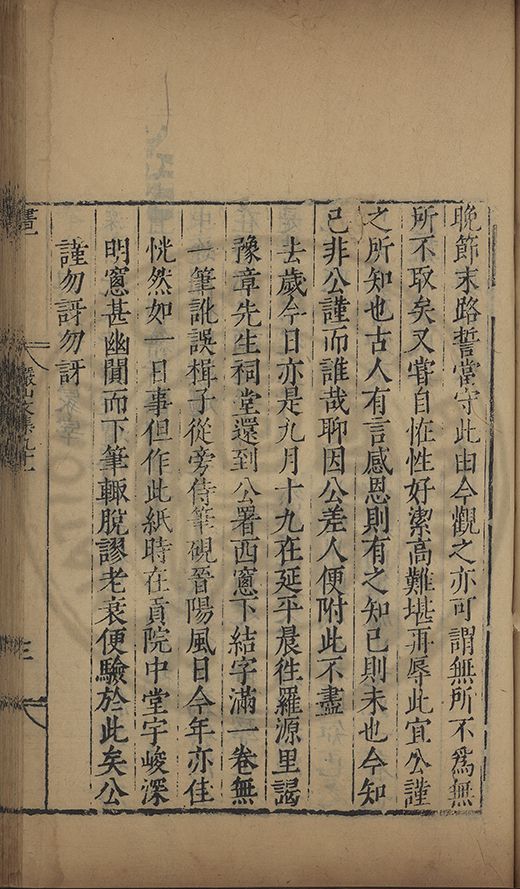 晚節末路誓當守此由今觀之亦可謂無所不爲無
所不取矣又嘗自恠性好潔高難堪耳辱此宜公謹
之所知也古人有言感恩則有之知已則未也今知
已非公謹而誰哉聊因公差人便附此不盡
去歲今日亦是九月十九在延平晨徃羅源里謁
豫章先生祠堂還到公署西窻下結字滿一卷無
一筆訛誤楫子從旁侍筆硯晉陽風日今年亦佳
恍然如一日事但作此紙時在貢院中堂宇峻深
明窻甚幽闃而下筆輙脫謬老衰便驗於此矣公
謹勿訝勿訝
儼山文集九十
三